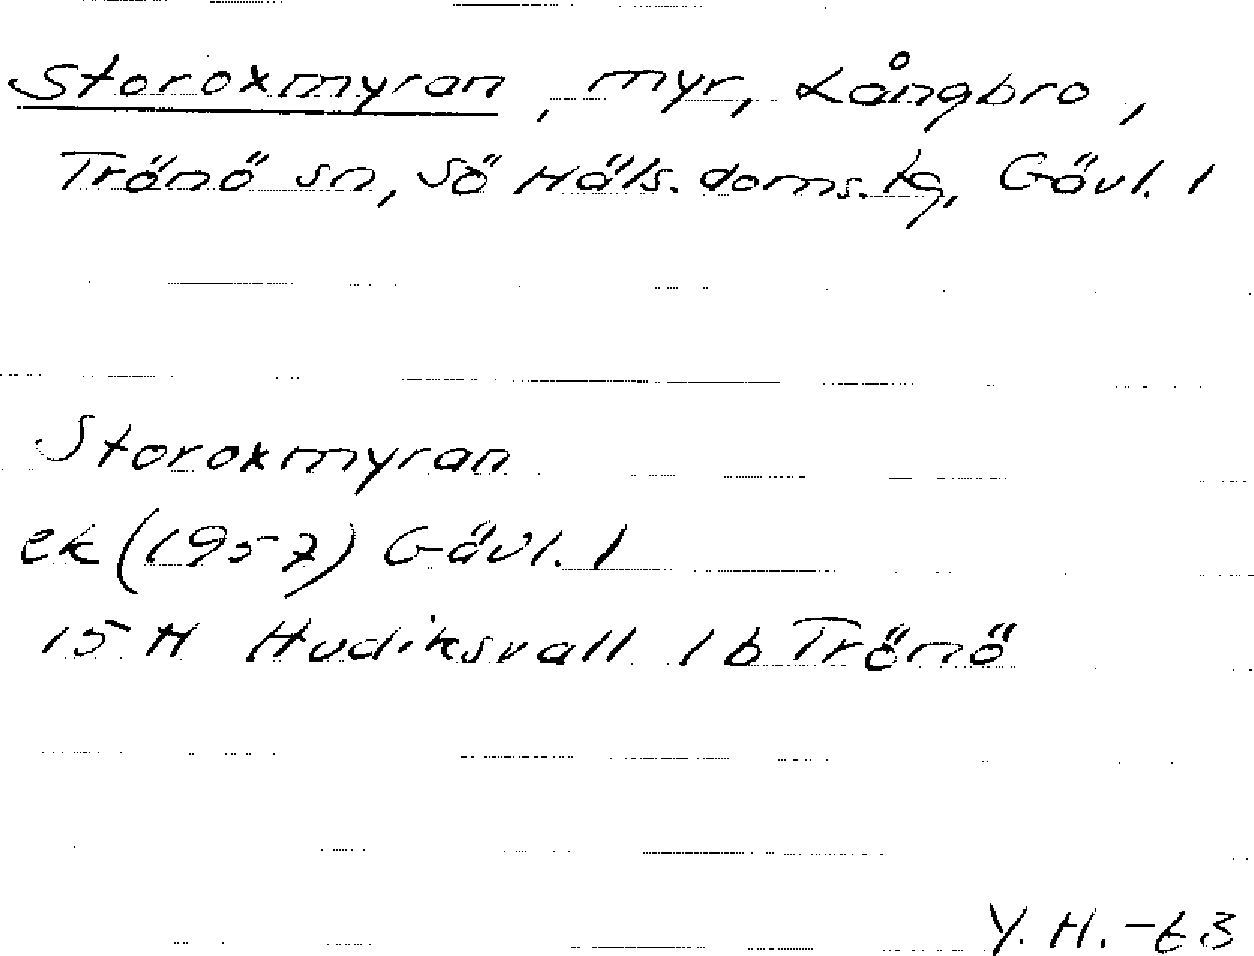 Storoxmyran, myr, Långbro,
Trönö sn, Sö Häls. doms.tg, Gävl. l
Storoxmyran
ek (1957) Gävl. l
15 H Hudiksvall 1 b Trönö
Y. H. -63